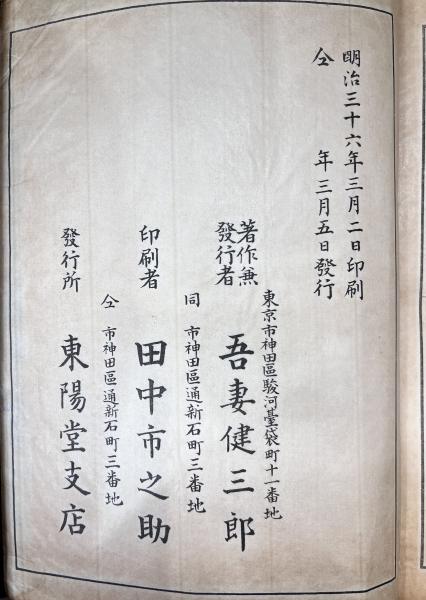 明治三十六年三月二日印刷
仝 年三月五日發行
東京市神田區駿河臺袋町十一番地
著作兼
發行者
吾妻健三郎
同 市神田區通新石町三番地
印刷者 田中市之助
仝 市神田區通新石町三番地
發行所 東陽堂支店